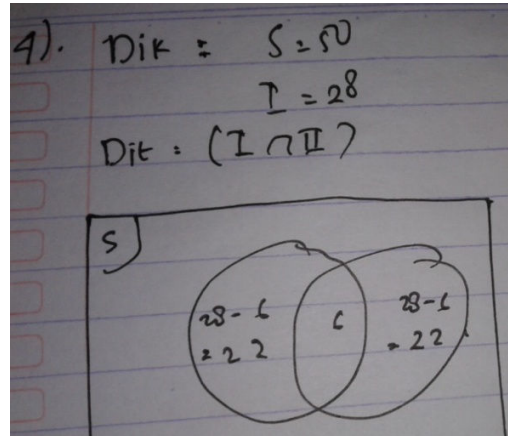 4). Dik : S = 50
I = 28
Dit : (I ∩ II)
S
28 - 6 = 22
6
28 - 6 = 22